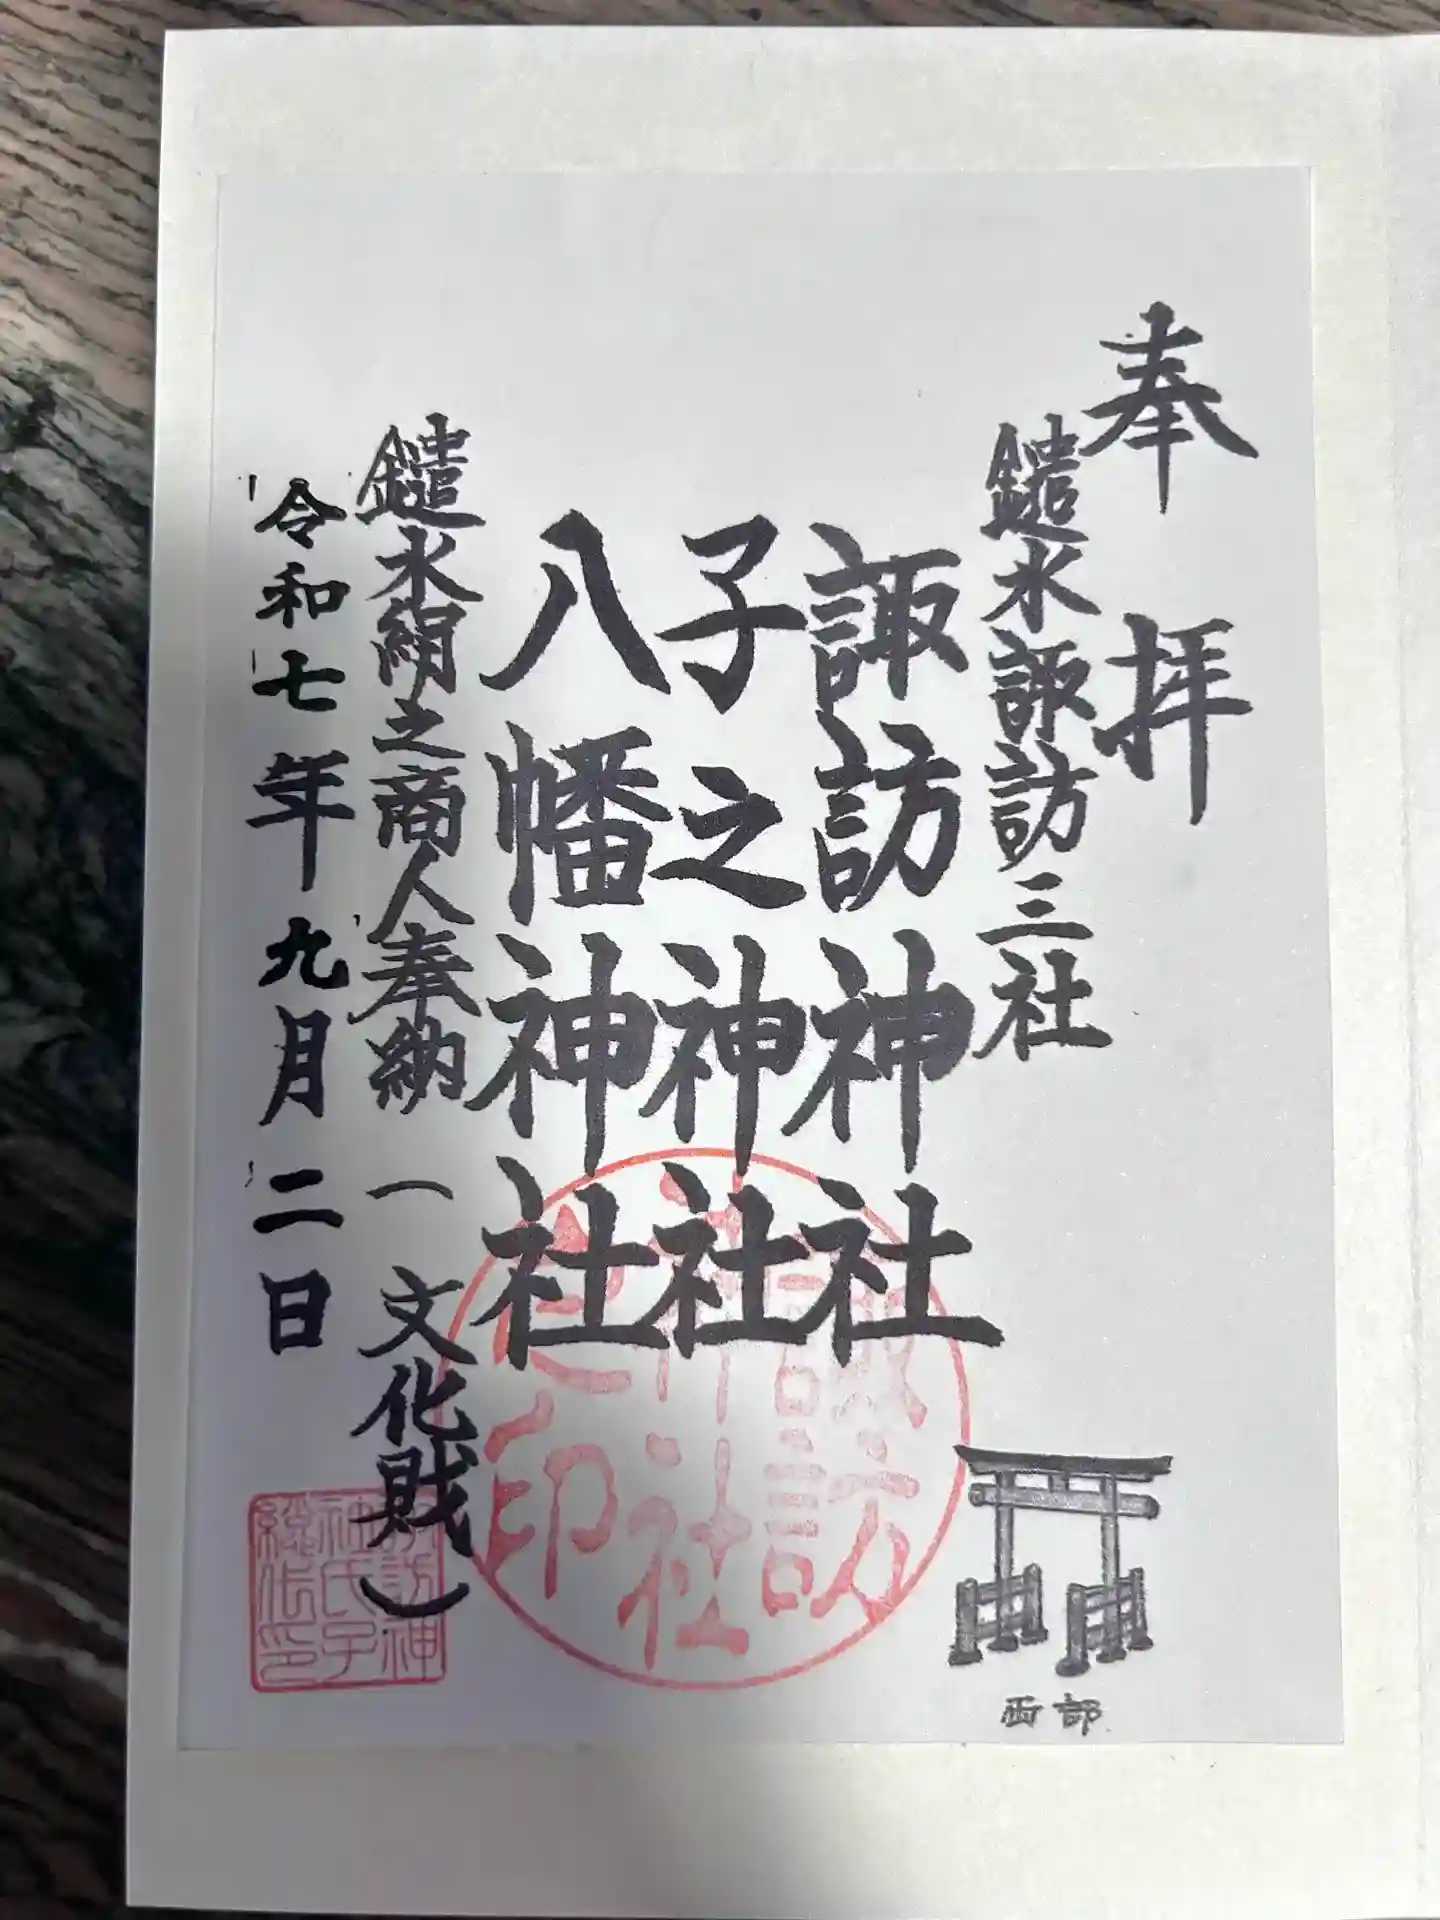 奉拝
鑓水諏訪三社
諏訪神社
子之神社
八幡神社
鑓水絹之商人奉納(文化財)
令和七年九月二日
諏訪
神社
之印
諏訪神
社氏子
総代印
西部